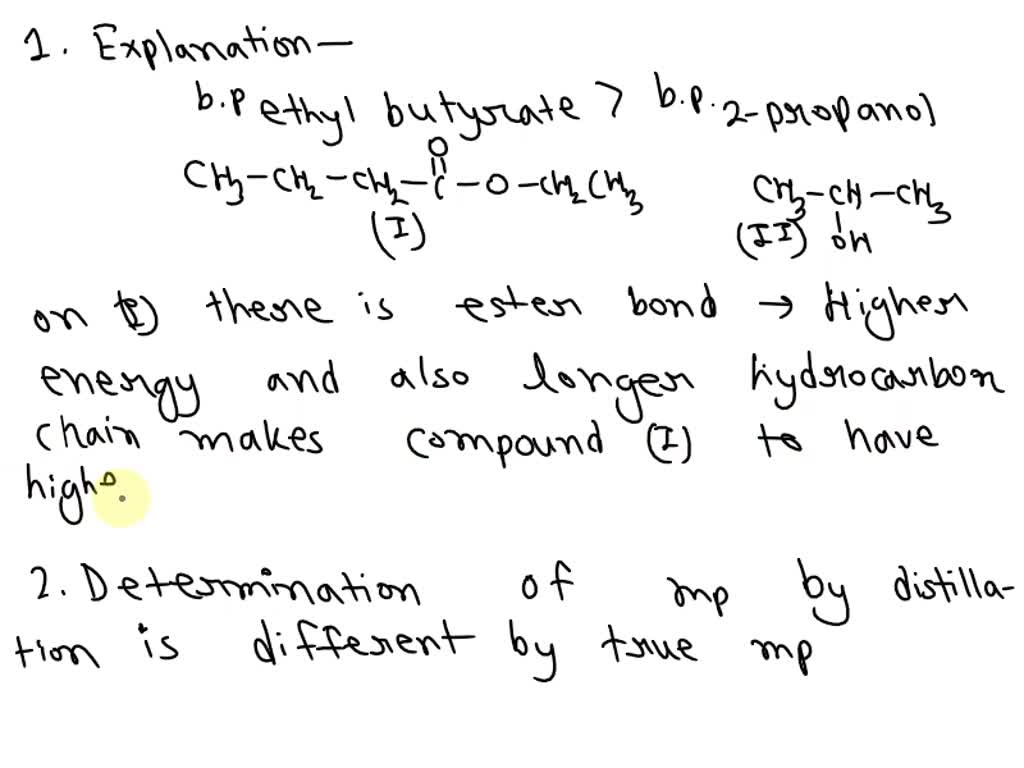 1. Explanation—
b.p ethyl butyrate > b.p. 2-propanol
O
CH3-CH2-CH2-C-O-CH2CH3
CH3-CH-CH3
(I)
(II) OH
on (I) there is ester bond → Higher
energy and also longer hydrocarbon
chain makes compound (I) to have
high
2. Determination of mp by distilla-
tion is different by true mp